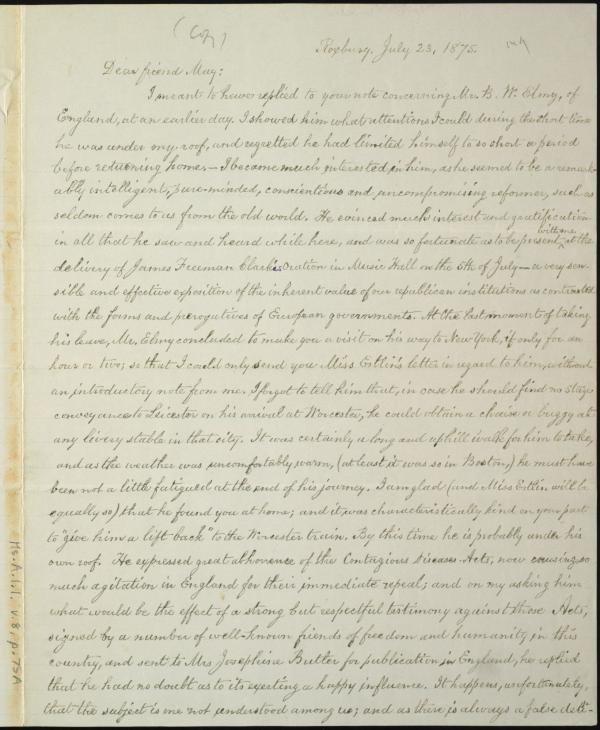 (Copy)
Roxbury, July 23, 1875.
Dear friend May:
I meant to have replied to your note concerning Mr. B. W. Elmy, of
England, at an earlier day. I showed him what attentions I could during the short time
he was under my roof, and regretted he had limited himself to so short a period
before returning home. — I became much interested in him, as he seemed to be a remark-
ably intelligent, pure-minded, conscientious and uncompromising reformer, such as
seldom comes to us from the old world. He evinced much interest and gratification
in all that he saw and heard while here, and was so fortunate as to be present, with me, at the
delivery of James Freeman Clarke's Oration in Music Hall on the 5th of July — a very sen-
sible and effective exposition of the inherent value of our republican institutions as contrasted
with the forms and prerogatives of European governments. At the last moment of taking
his leave, Mr. Elmy concluded to make you a visit on his way to New York, if only for an
hour or two; so that I could only send you Miss Estlin's letter in regard to him, without
an introductory note from me. I forgot to tell him that, in case he should find no stage
conveyance to Leicester on his arrival at Worcester, he could obtain a chaise or buggy at
any livery stable in that city. It was certainly a long and uphill walk for him to take,
and as the weather was uncomfortably warm, (at least it was so in Boston,) he must have
been not a little fatigued at the end of his journey. I am glad (and Miss Estlin will be
equally so) that he found you at home; and it was characteristically kind on your part
to "give him a lift back" to the Worcester train. By this time he is probably under his
own roof. He expressed great abhorence of the Contagious Diseases Acts, now causing so
much agitation in England for their immediate repeal; and on my asking him
what would be the effect of a strong but respectful testimony against those Acts,
signed by a number of well-known friends of freedom and humanity in this
country, and sent to Mrs Josephine Butler for publication in England, he replied
that he had no doubt as to its exerting a happy influence. It happens, unfortunately,
that the subject is one not understood among us; and as there is always a false deli-
Ms.A.1.1. v.8, p.73A